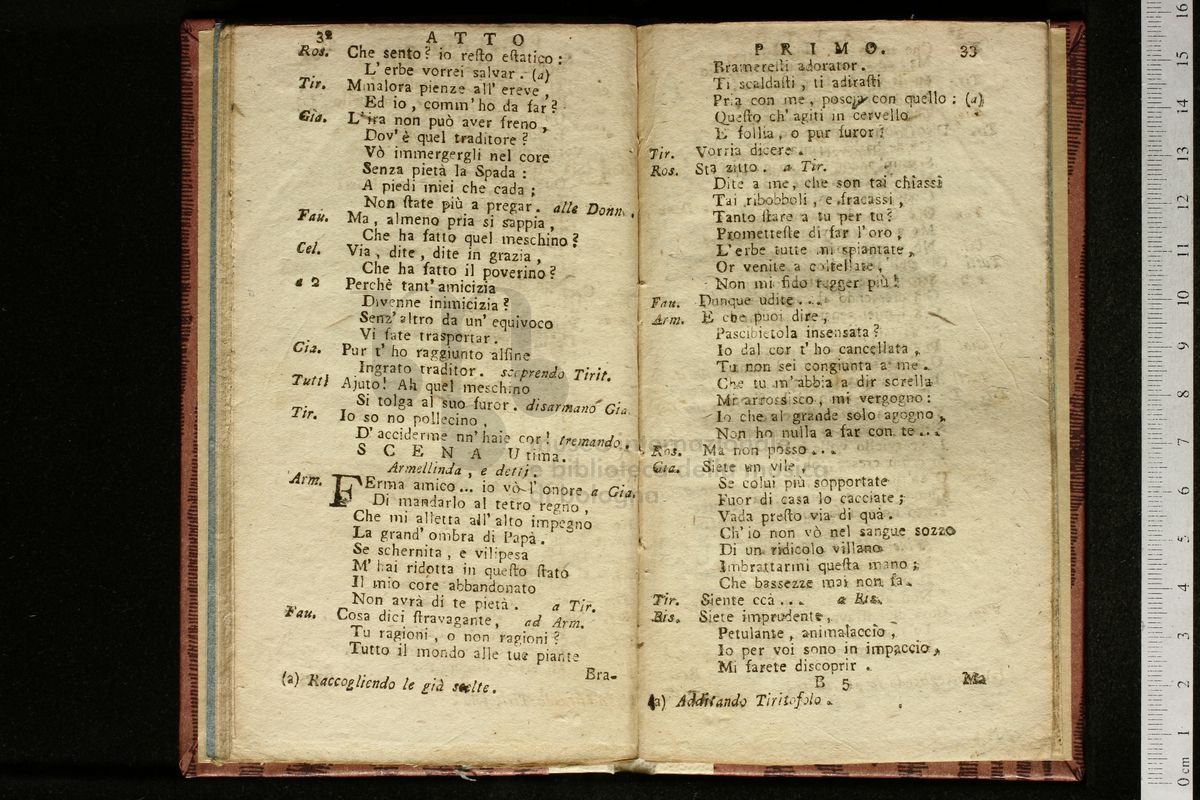 32 ATTO
Ros. Che sento? io reſto eſtatico:
L' erbe vorrei salvar. (a)
Tir. Mmalora pienze all' ereve,
Ed io, comm' ho da far?
Gia. L'ira non può aver freno,
Dov' è quel traditore?
Vò immergergli nel core
Senza pietà la Spada:
A piedi miei che cada;
Non ſtate più a pregar. alle Donn.
Fau. Ma, almeno pria si sappia,
Che ha fatto quel meschino?
Cel. Via, dite, dite in grazia,
Che ha fatto il poverino?
a 2 Perchè tant' amicizia
Divenne inimicizia?
Senz' altro da un' equivoco
Vi fate trasportar.
Gia. Pur t' ho raggiunto alfine
Ingrato traditor. scoprendo Tirit.
Tutti Ajuto! Ah quel meschino
Si tolga al suo furor. disarmano Gia.
Tir. Io so no pollecino,
D' acciderme nn' haie cor! tremando.
SCENA Ultima.
Armellinda, e detti.
Arm. FErma amico... io vò l' onore a Gia.
Di mandarlo al tetro regno,
Che mi alletta all' alto impegno
La grand' ombra di Papà.
Se schernita, e vilipesa
M' hai ridotta in queſto ſtato
Il mio core abbandonato
Non avrà di te pietà. a Tir.
Fau. Cosa dici ſtravagante, ad Arm.
Tu ragioni, o non ragioni?
Tutto il mondo alle tue piante
Bra-
(a) Raccogliendo le già scelte.
PRIMO. 33
Bramerelli adorator.
Ti scaldaſti, ti adiraſti
Pria con me, poscia con quello: (a)
Queſto ch' agiti in cervello
E' follia, o pur furor?
Tir. Vorria dicere.
Ros. Sta zitto. a Tir.
Dite a me, che son tai chiassi
Tai ribobboli, e fracassi,
Tanto ſtare a tu per tu?
Prometteſte di far l'oro,
L'erbe tutte mi spiantate,
Or venite a coltellate,
Non mi fido regger più!
Fau. Dunque udite...
Arm. E che puoi dire,
Pascibietola insensata?
Io dal cor t' ho cancellata,
Tu non sei congiunta a me.
Che tu m'abbia a dir sorella
Mi arrossisco, mi vergogno:
Io che al grande solo agogno,
Non ho nulla a far con te...
Ros. Ma non posso...
Gia. Siete un vile,
Se colui più sopportate
Fuor di casa lo cacciate;
Vada preſto via di quà.
Ch' io non vò nel sangue sozzo
Di un ridicolo villano
Imbrattarmi queſta mano;
Che bassezze mai non fa.
Tir. Siente ccà... a Bis.
Bis. Siete imprudente,
Petulante, animalaccio,
Io per voi sono in impaccio,
Mi farete discoprir.
B 5 Ma
(a) Additando Tiritofolo.
museo internazionale
e biblioteca della musica
di bologna